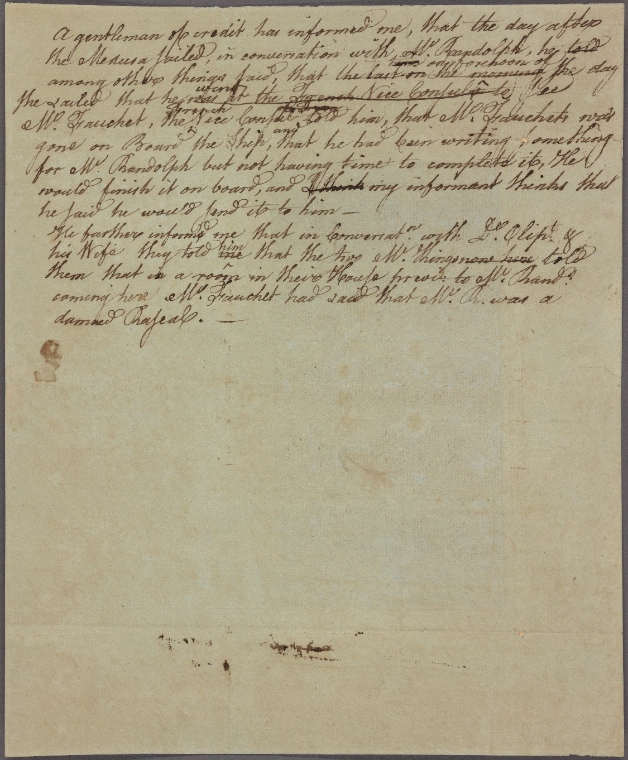 A gentleman of credit has informed me, that the day after
the Medusa sailed, in conversation with Mr. Randolph, he told
among other things said, that the last on the morning the day
on forenoon of
she sailed that he was at the French Vice Consuls to see
went
Mr. Fauchet, the Vice Consul told him, that Mr. Fauchet was
French
gone on Board the Ship, that he had been writing something
and
for Mr. Randolph but not having time to complete it, He
would finish it on board, and I think my informant thinks that
he said he would send it to him —
He farther informd me that in Conversatn. with Dr. &
his Wife they told me that the told
him
them that in a room in their House previs. to Mr. Rand.
coming here Mr. Fauchet had said that Mr. R. was a
damned Rascal. —